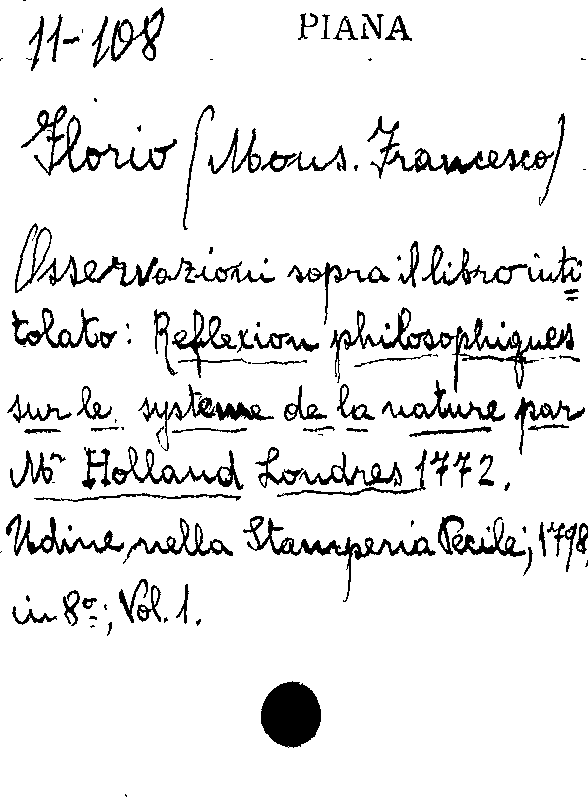 11-108 PIANA
Florio (Mons. Francesco)
Osservazioni sopra il libro inti=
tolato: Reflexion philosophiques
sur le systeme de la nature par
Mr Holland Londres 1772.
Udine, nella Stamperia Pecile; 1798,
in 8º; Vol. 1.